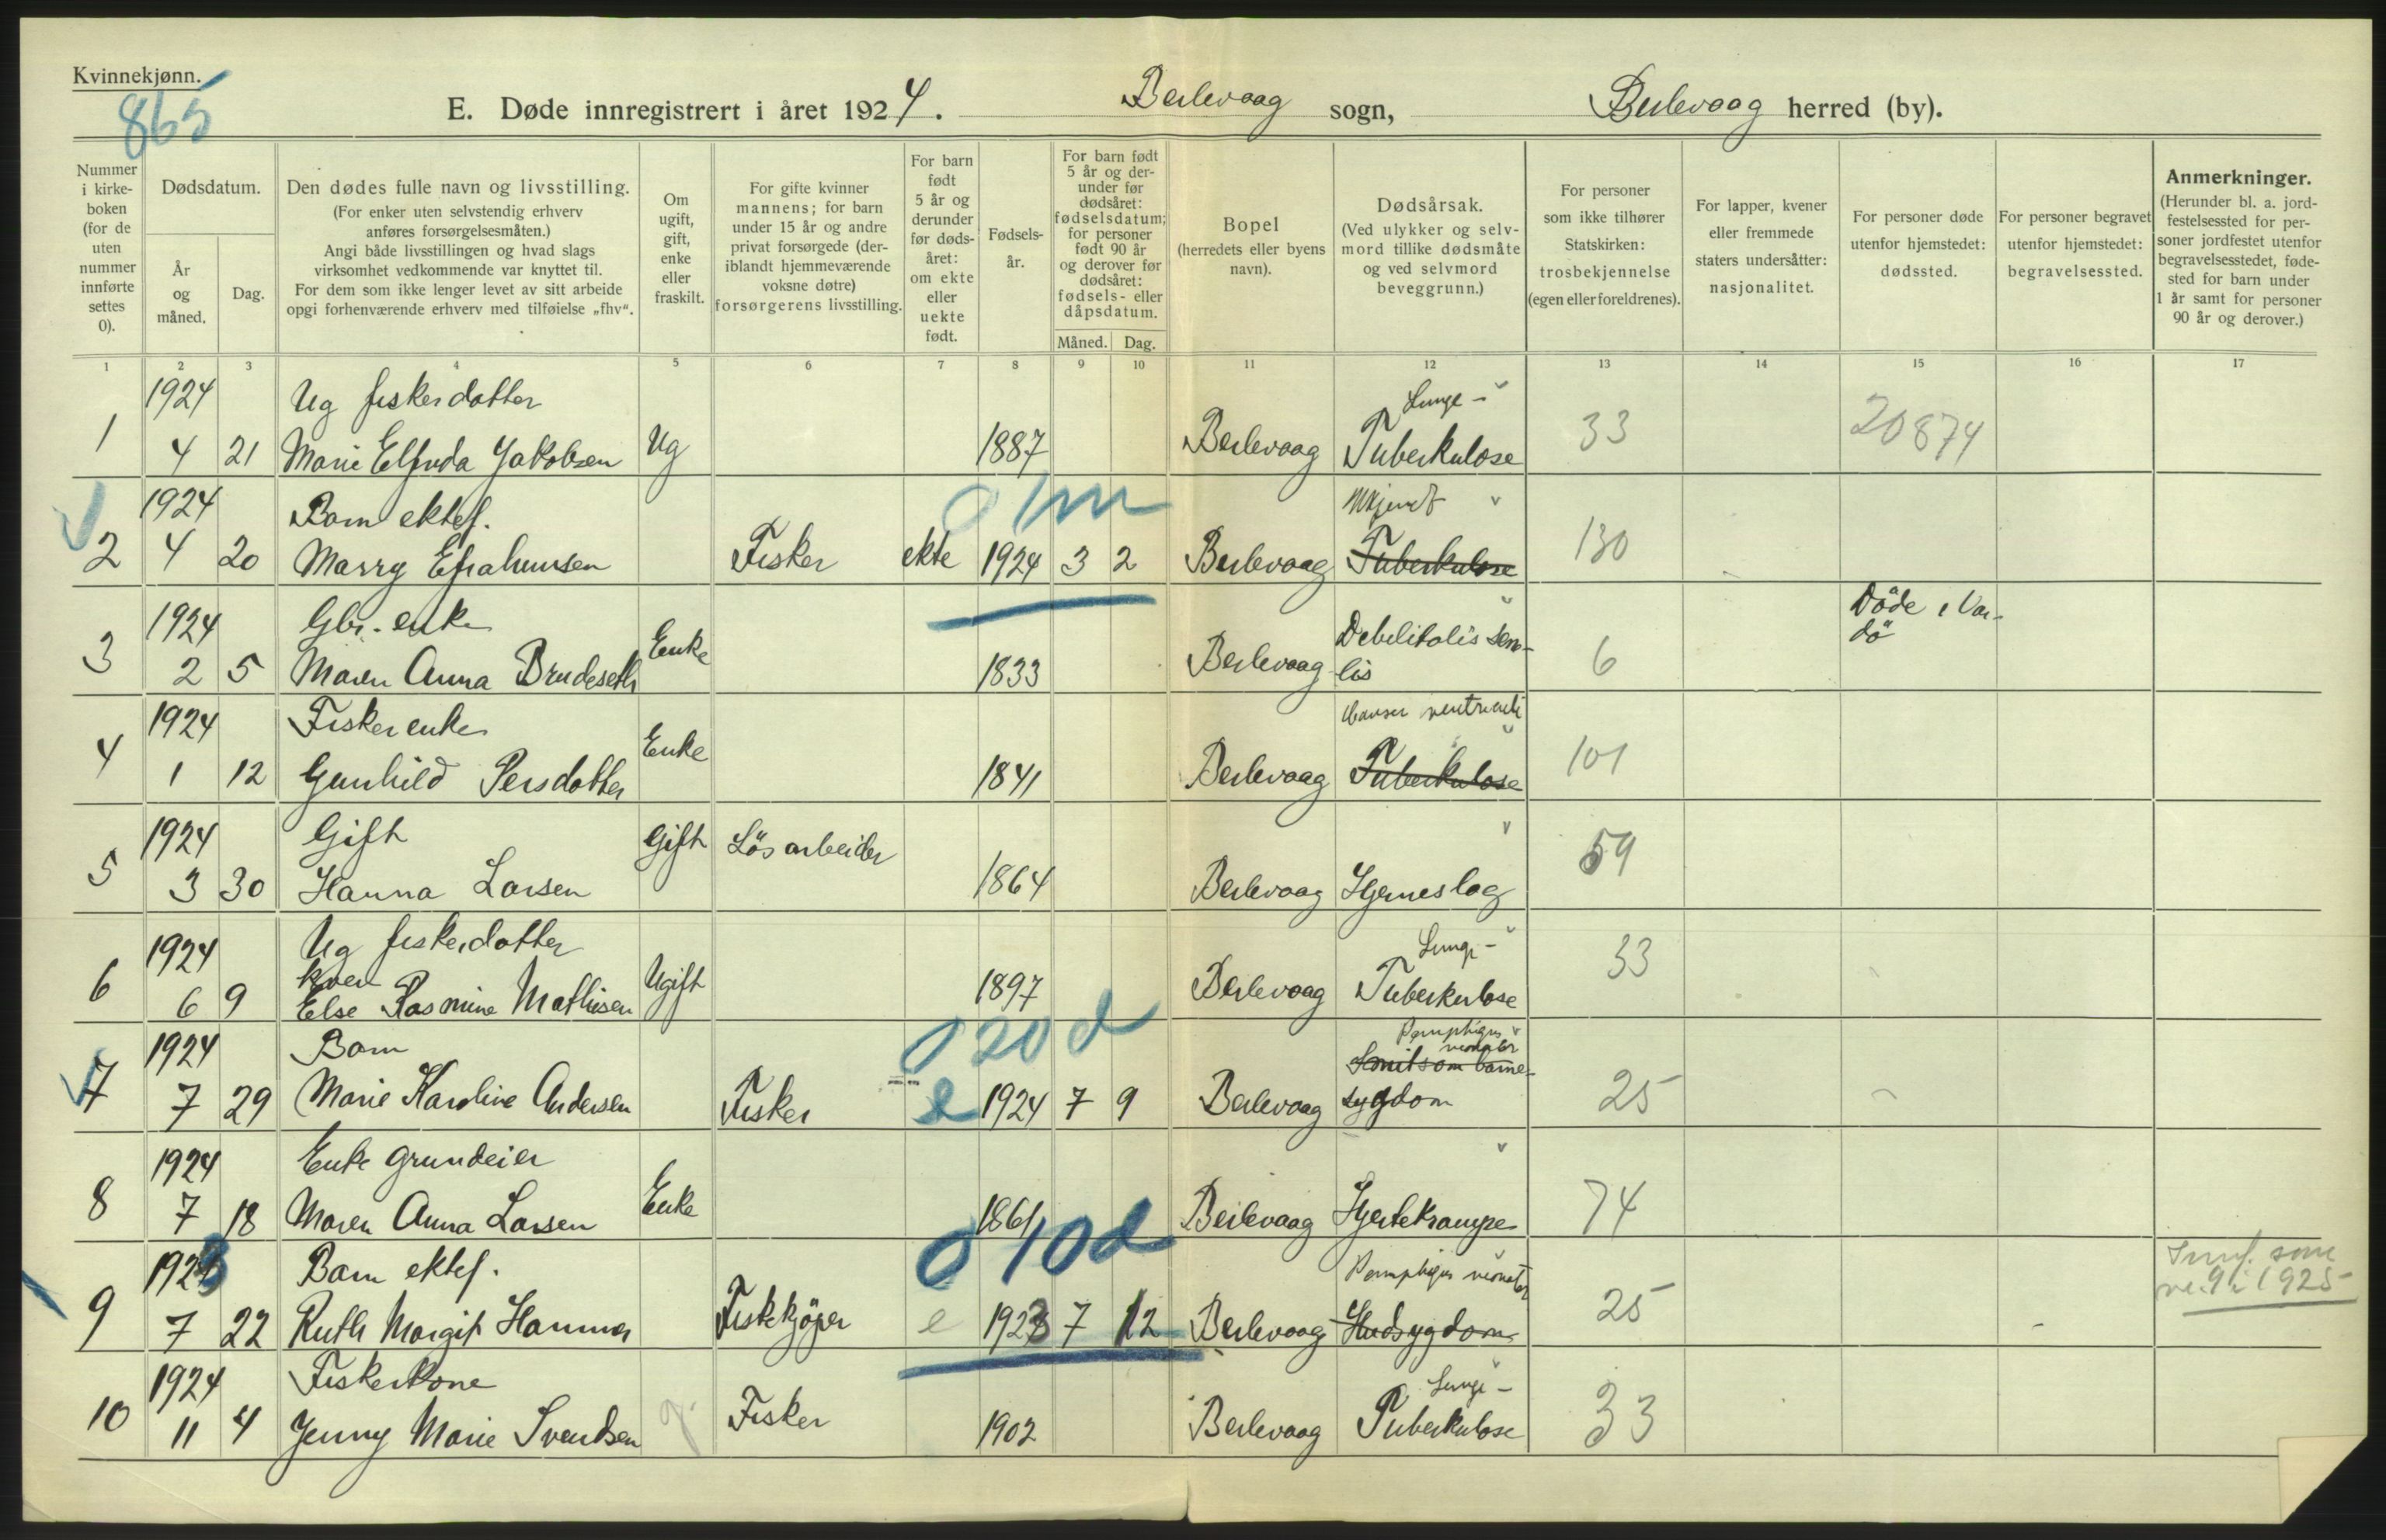 Kvinnekjønn.
865
E. Døde innregistrert i året 1924. Berlevaag sogn, Berlevaag herred (by).
Nummer i kirke- boken (for de uten nummer innførte settes 0).
Dødsdatum.
År og måned.
Dag.
Den dødes fulle navn og livsstilling.
(For enker uten selvstendig erhverv anføres forsørgelsesmåten.)
Angi både livsstillingen og hvad slags virksomhet vedkommende var knyttet til.
For dem som ikke lenger levet av sitt arbeide opgi forhenværende erhverv med tilføielse „fhv“.
Om ugift, gift, enke eller fraskilt.
For gifte kvinner mannens; for barn under 15 år og andre privat forsørgede (der- iblandt hjemmeværende voksne døtre) forsørgerens livsstilling.
For barn født 5 år og derunder før døds- året: om ekte eller uekte født.
Fødsels- år.
For barn født 5 år og der- under før dødsåret: fødselsdatum; for personer født 90 år og derover før dødsåret: fødsels- eller dåpsdatum.
Måned. Dag.
Bopel (herredets eller byens navn).
Dødsårsak.
(Ved ulykker og selv- mord tillike dødsmåte og ved selvmord beveggrunn.)
For personer som ikke tilhører Statskirken: trosbekjennelse (egen eller foreldrenes).
For lapper, kvener eller fremmede staters undersåtter: nasjonalitet.
For personer døde utenfor hjemstedet: dødssted.
For personer begravet utenfor hjemstedet: begravelsessted.
Anmerkninger.
(Herunder bl. a. jord- festelsessted for per- soner jordfestet utenfor begravelsesstedet, føde- sted for barn under 1 år samt for personer 90 år og derover.)
1 2 3 4 5 6 7 8 9 10 11 12 13 14 15 16 17
1924 Ug fiskerdatter Lunge-
1 4 21 Marie Elfrida Jakobsen Ug 1887 Berlevaag Tuberkulose 33 20874
1924 Barn ektef. 0 1 m
2 4 20 Marry Efraimsen Fisker ekte 1924 3 2 Berlevaag Tuberkulose 130
1924 Gbr. enke Døde i Var-
dø
3 2 5 Maren Anna Brudeseth Enke 1833 Berlevaag Debilitatis seni-
lis 6
1924 Fisker enke
4 1 12 Gunhild Persdatter Enke 1841 Berlevaag Tuberkulose 101
1924 Gift
5 3 30 Hanna Larsen Gift Løsarbeider 1864 Berlevaag Hjerneslag 59
1924 Ug fiskerdatter Lunge-
kven
6 6 9 Else Rasmine Mathisen Ugift 1897 Berlevaag Tuberkulose 33
1924 Barn 0 20 d Pemphigus neonator
Smitsom barne-
7 7 29 Marie Karoline Andersen Fisker e 1924 7 9 Berlevaag sygdom 25
1924 Enke grundeier
8 7 18 Maren Anna Larsen Enke 1861 Berlevaag Hjertekrampe 74
1923 Barn ektef. 0 10 d Pemphigus neonator
Innf. som
nr. 9 i 1925
9 7 22 Ruth Margit Hammer Fiskekjøper e 1923 7 12 Berlevaag Hudsygdom 25
1924 Fiskerkone Lunge-
10 11 4 Jenny Marie Svendsen g. Fisker 1902 Berlevaag Tuberkulose 33